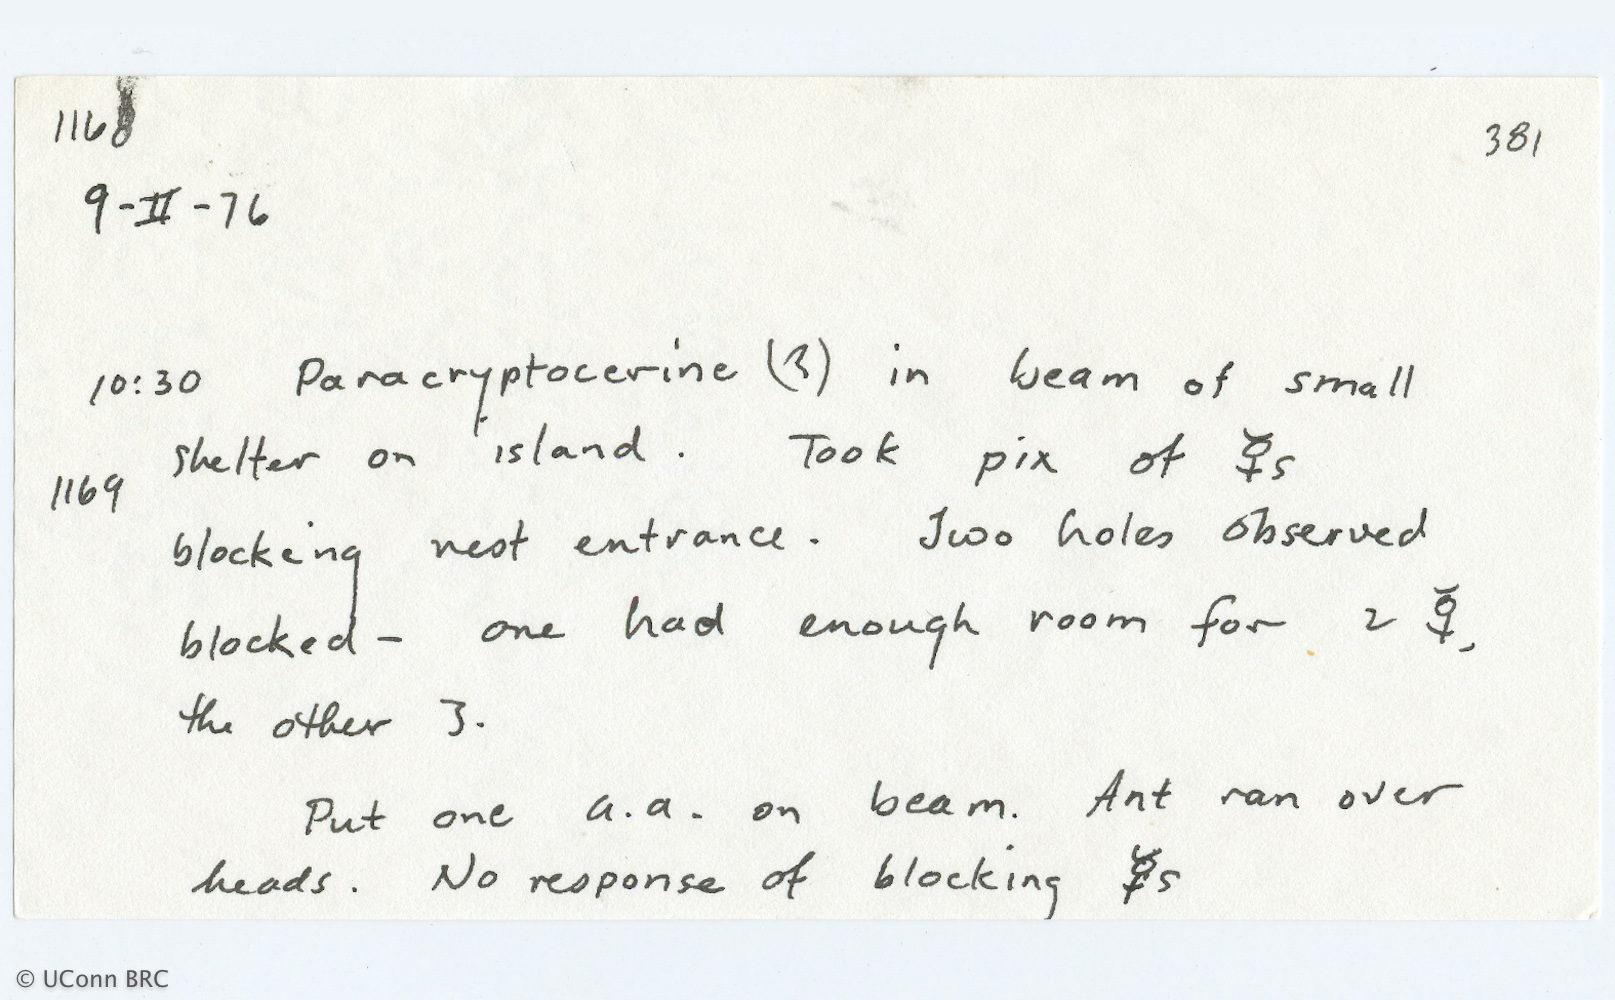 1168
381
9-II-76
10:30 Paracryptocerine (3) in beam of small
shelter on island. Took pix of ☿s
1169
blocking nest entrance. Two holes observed
blocked - one had enough room for 2 ☿,
the other 3.
Put one a.a. on beam. Ant ran over
heads. No response of blocking ☿s
© UConn BRC